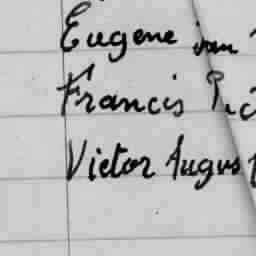 Eugene van
Francis
Victor August